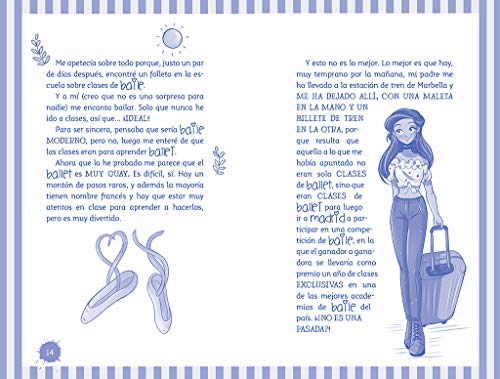 Me apetecía sobre todo porque, justo un par
de días después, encontré un folleto en la es-
cuela sobre clases de baile.
Y a mí (creo que no es una sorpresa para
nadie) me encanta bailar. Solo que nunca he
ido a clases, así que... ¡IDEAL!
Para ser sincera, pensaba que sería baile
MODERNO, pero no, luego me enteré de que
las clases eran para aprender ballet.
Ahora que lo he probado me parece que el
ballet es MUY GUAY. Es difícil, sí. Hay un
montón de pasos raros, y además la mayoría
tienen nombre francés y hay que estar muy
atentos en clase para aprender a hacerlos,
pero es muy divertido.
14
Y esto no es lo mejor. Lo mejor es que hoy,
muy temprano por la mañana, mi padre me
ha llevado a la estación de tren de Marbella y
ME HA DEJADO ALLÍ, CON UNA MALETA
EN LA MANO Y UN
BILLETE DE TREN
EN LA OTRA, por-
que resulta que
aquello a lo que me
había apuntado no
eran solo CLASES
de ballet, sino que
eran CLASES de
ballet para luego
ir a madrid a par-
ticipar en una compe-
tición de baile, en la
que el ganador o gana-
dora se llevaría como
premio un año de clases
EXCLUSIVAS en una
de las mejores acade-
mias de baile del
país. ¡¿NO ES UNA
PASADA?!